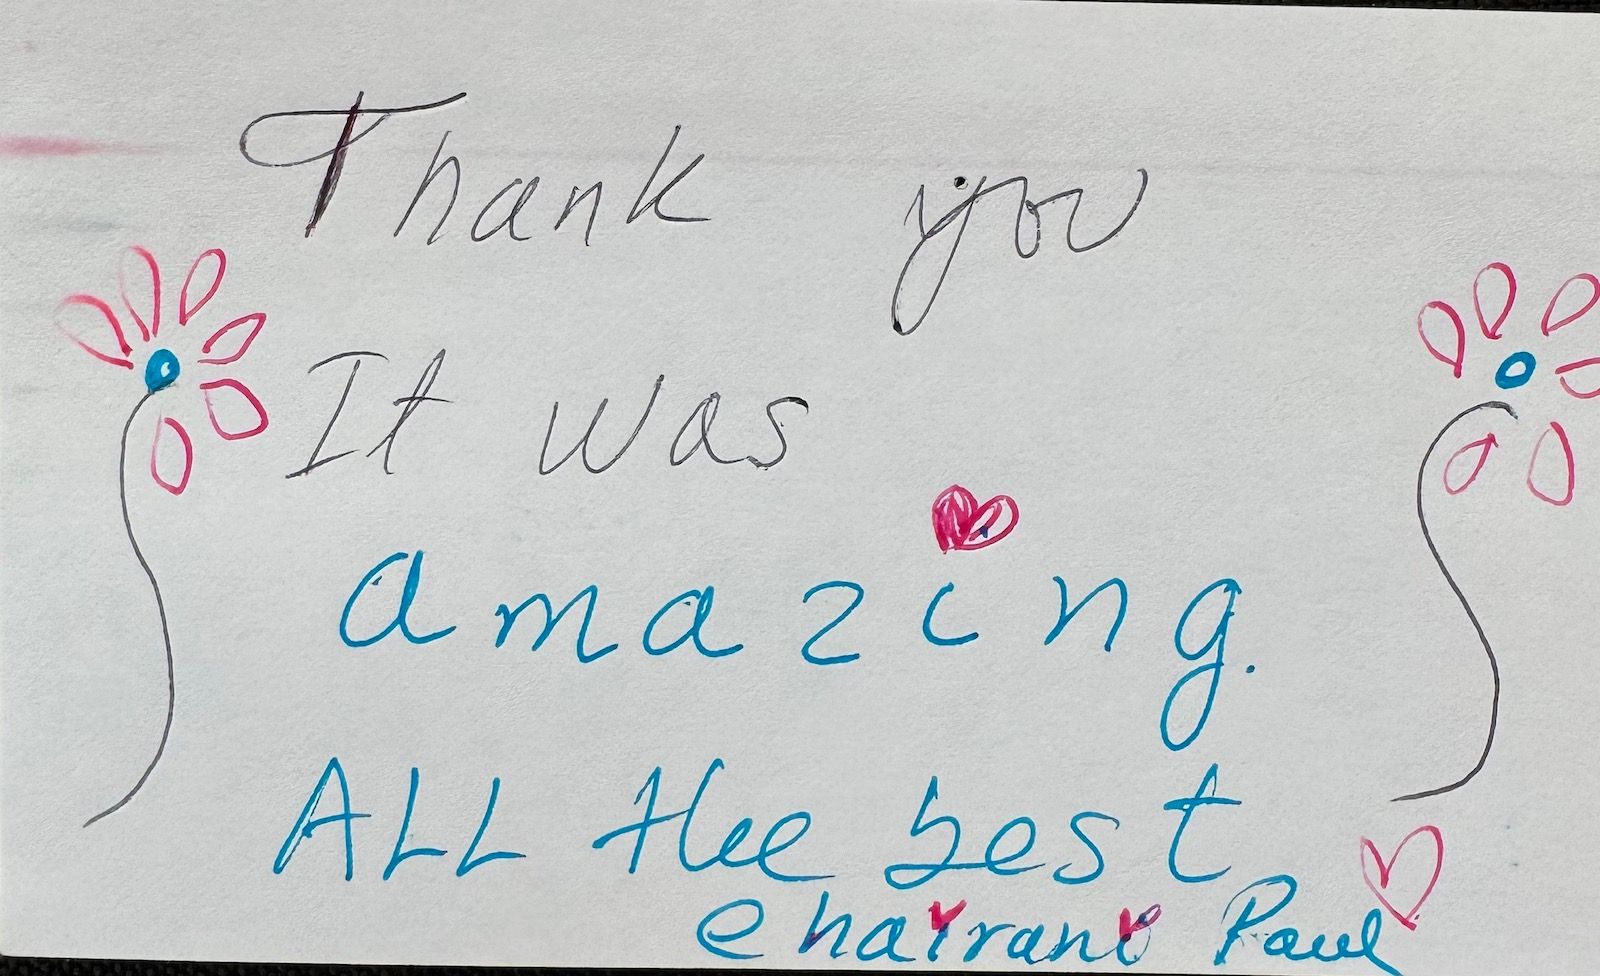 Thank you
It was
amazing.
ALL the best
ehairani Paul